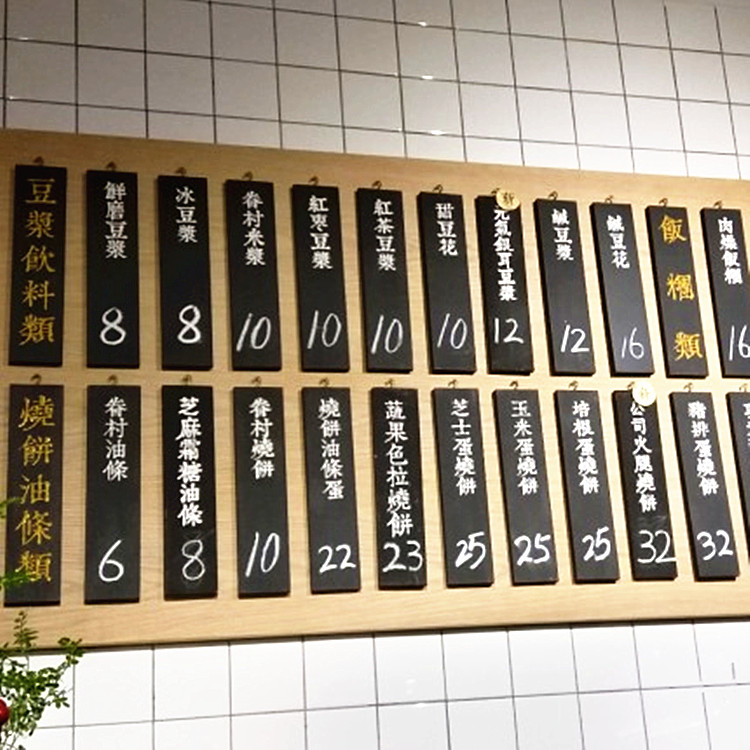 豆漿飲料類
鮮磨豆漿
8
冰豆漿
8
眷村米漿
10
紅棗豆漿
10
紅茶豆漿
10
甜豆花
10
新
元氣銀耳豆漿
12
鹹豆漿
12
鹹豆花
16
飯糰類
肉燥飯糰
16
燒餅油條類
眷村油條
6
芝麻霜糖油條
8
眷村燒餅
10
燒餅油條蛋
22
蔬果色拉燒餅
23
芝士蛋燒餅
25
玉米蛋燒餅
25
培根蛋燒餅
25
新
公司火腿燒餅
32
豬排蛋燒餅
32